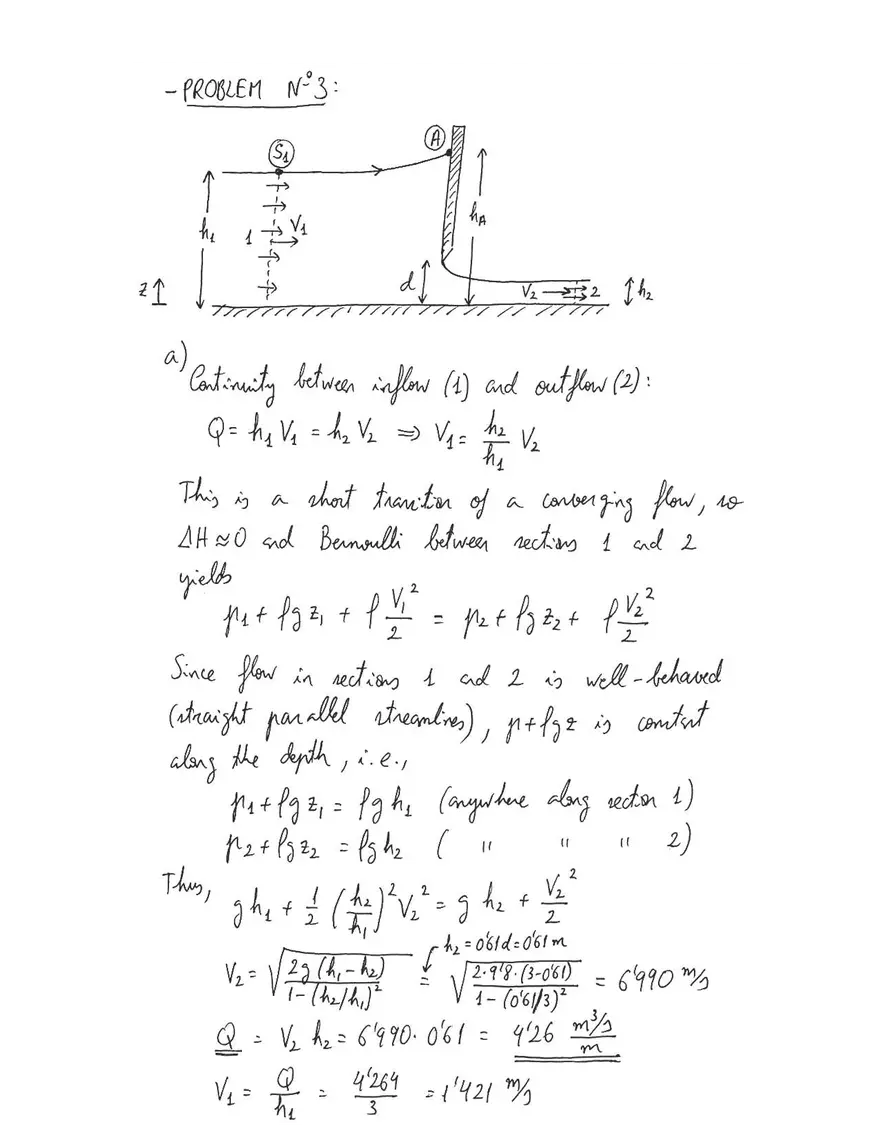 - PROBLEM Nº 3:
S1
A
h1
1
V1
hA
z
d
V2
2
h2
a) Continuity between inflow (1) and outflow (2):
Q = h1 V1 = h2 V2 ⇒ V1 = h2/h1 V2
This is a short transition of a converging flow, so
ΔH ≈ 0 and Bernoulli between sections 1 and 2
yields
p1 + ρg z1 + ρ V1²/2 = p2 + ρg z2 + ρ V2²/2
Since flow in sections 1 and 2 is well-behaved
(straight parallel streamlines), p+ρgz is constant
along the depth, i.e.,
p1 + ρg z1 = ρg h1 (anywhere along section 1)
p2 + ρg z2 = ρg h2 ( " " " 2)
Thus,
g h1 + 1/2 (h2/h1)² V2² = g h2 + V2²/2
h2 = 0'61d = 0'61 m
V2 = √(2g (h1 - h2) / 1 - (h2/h1)²) = √(2·9'8·(3-0'61) / 1 - (0'61/3)²) = 6'990 m/s
Q = V2 h2 = 6'990 · 0'61 = 4'26 m³/s / m
V1 = Q/h1 = 4'264/3 = 1'421 m/s